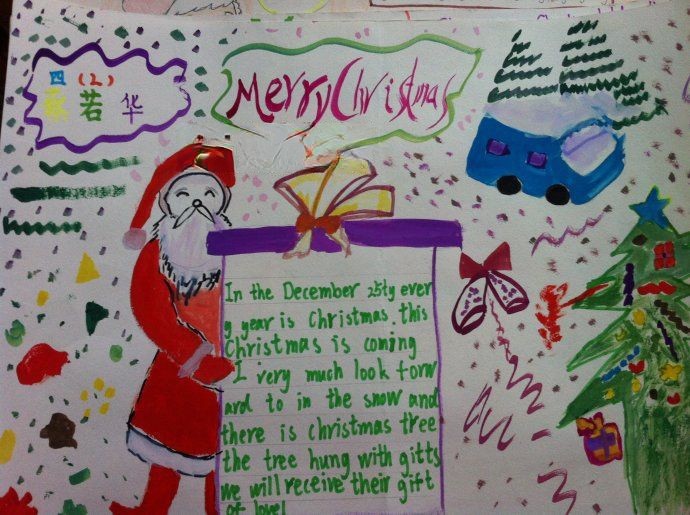 四(2)
蔡若华
Merry Christmas
In the December 25ty ever
y year is Christmas. this
Christmas is coming
I very much look forw
ard to in the snow and
there is christmas tree
the tree hung with gitts
we will receive their gift
of love!